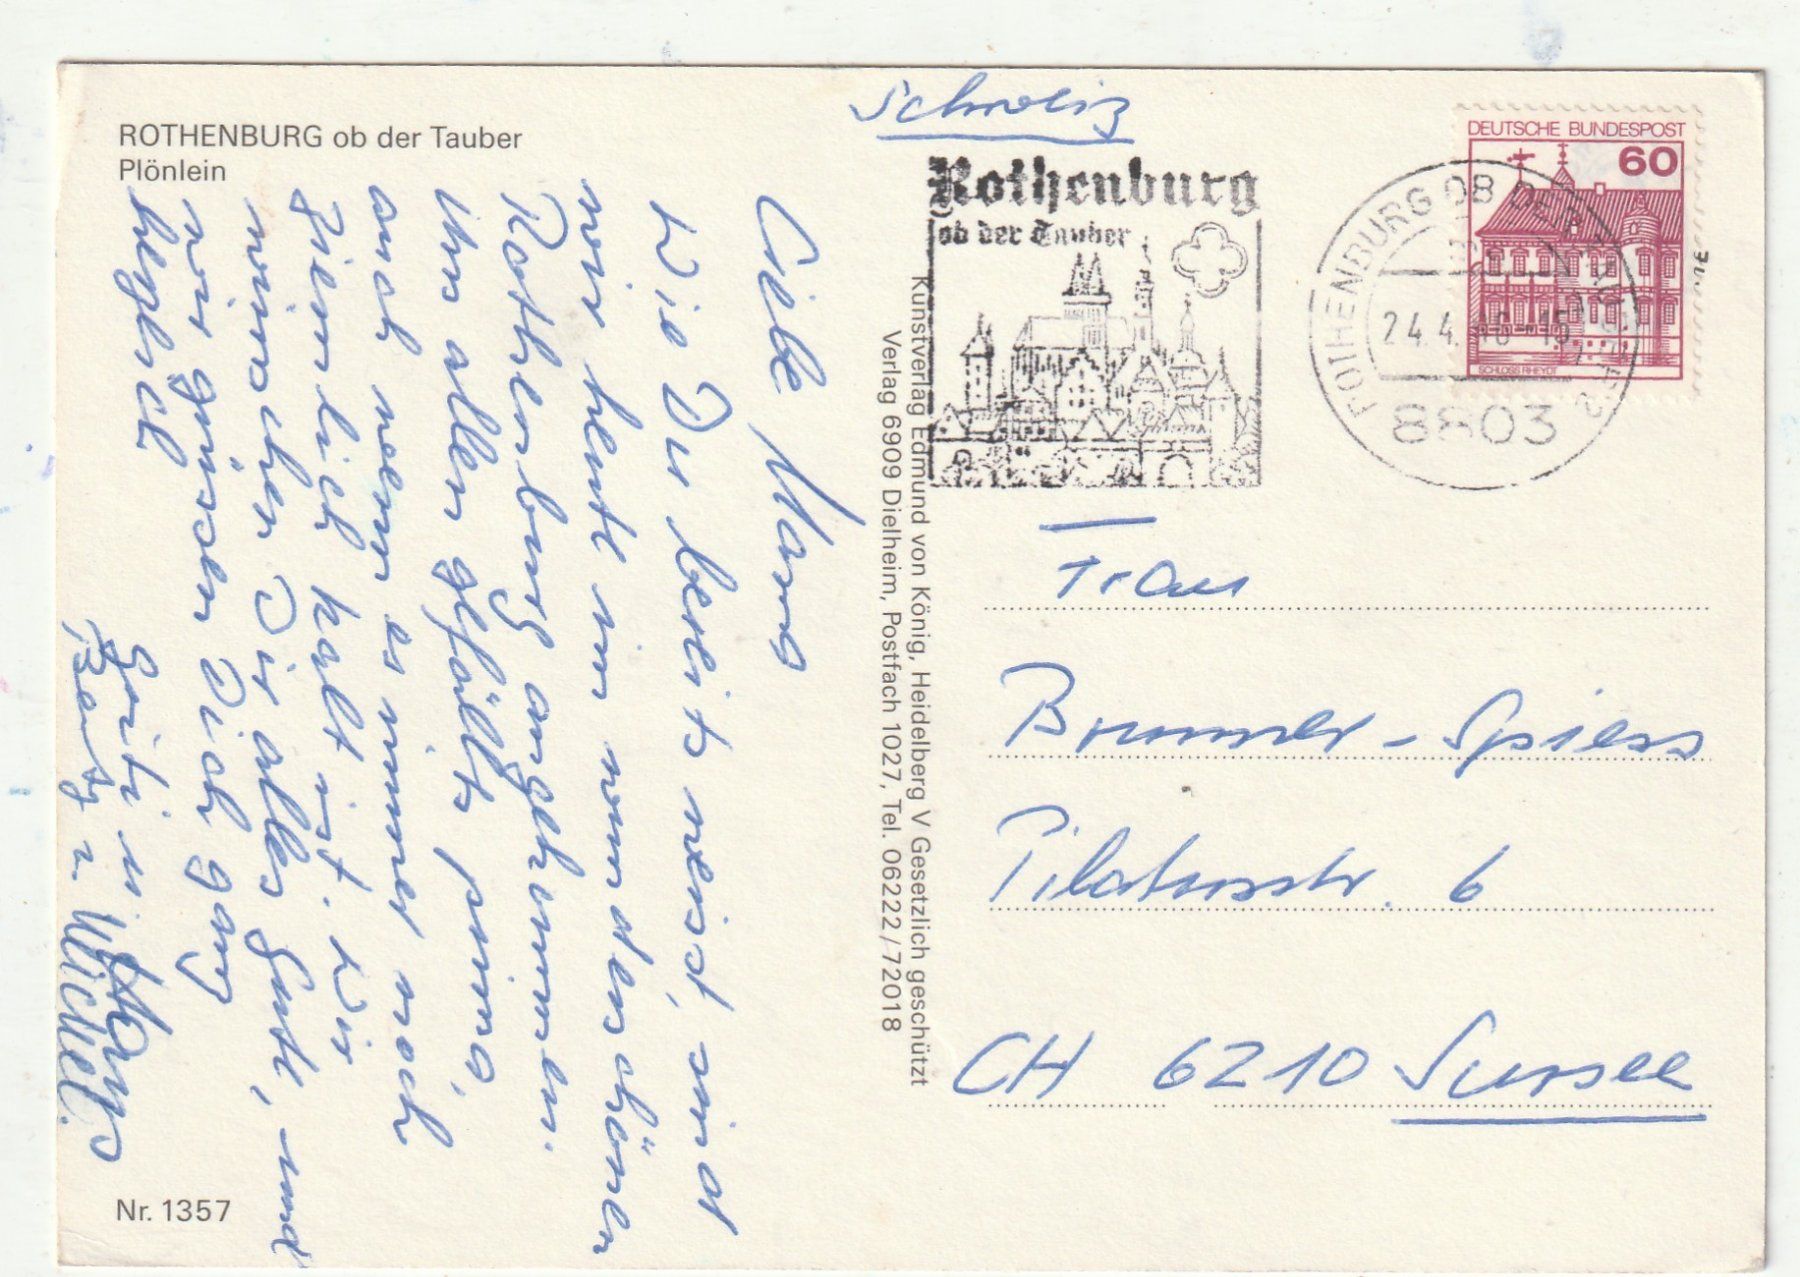 ROTHENBURG ob der Tauber
Plönlein
Liebe Marg
Wie Du bereits weist, sind
wir heute im wunderschönen
Rothenburg angekommen.
Uns allen gefällts prima,
auch wenn es immer noch
ziemlich kalt ist. Wir
wünschen Dir alles Gute, und
wir grüssen Dich ganz
herzlich
u. Hans
u. Michel.
Nr. 1357
Kunstverlag Edmund von König, Heidelberg V Gesetzlich geschützt
Verlag 6909 Dielheim, Postfach 1027, Tel. 06222/72018
Schweiz
Rothenburg
ob der Tauber
DEUTSCHE BUNDESPOST
60
SCHLOSS RHEYDT
ROTHENBURG OB DER TAUBER
24.4.
8803
Frau
Brunner-Spiess
Pilatusstr. 6
CH 6210 Sursee